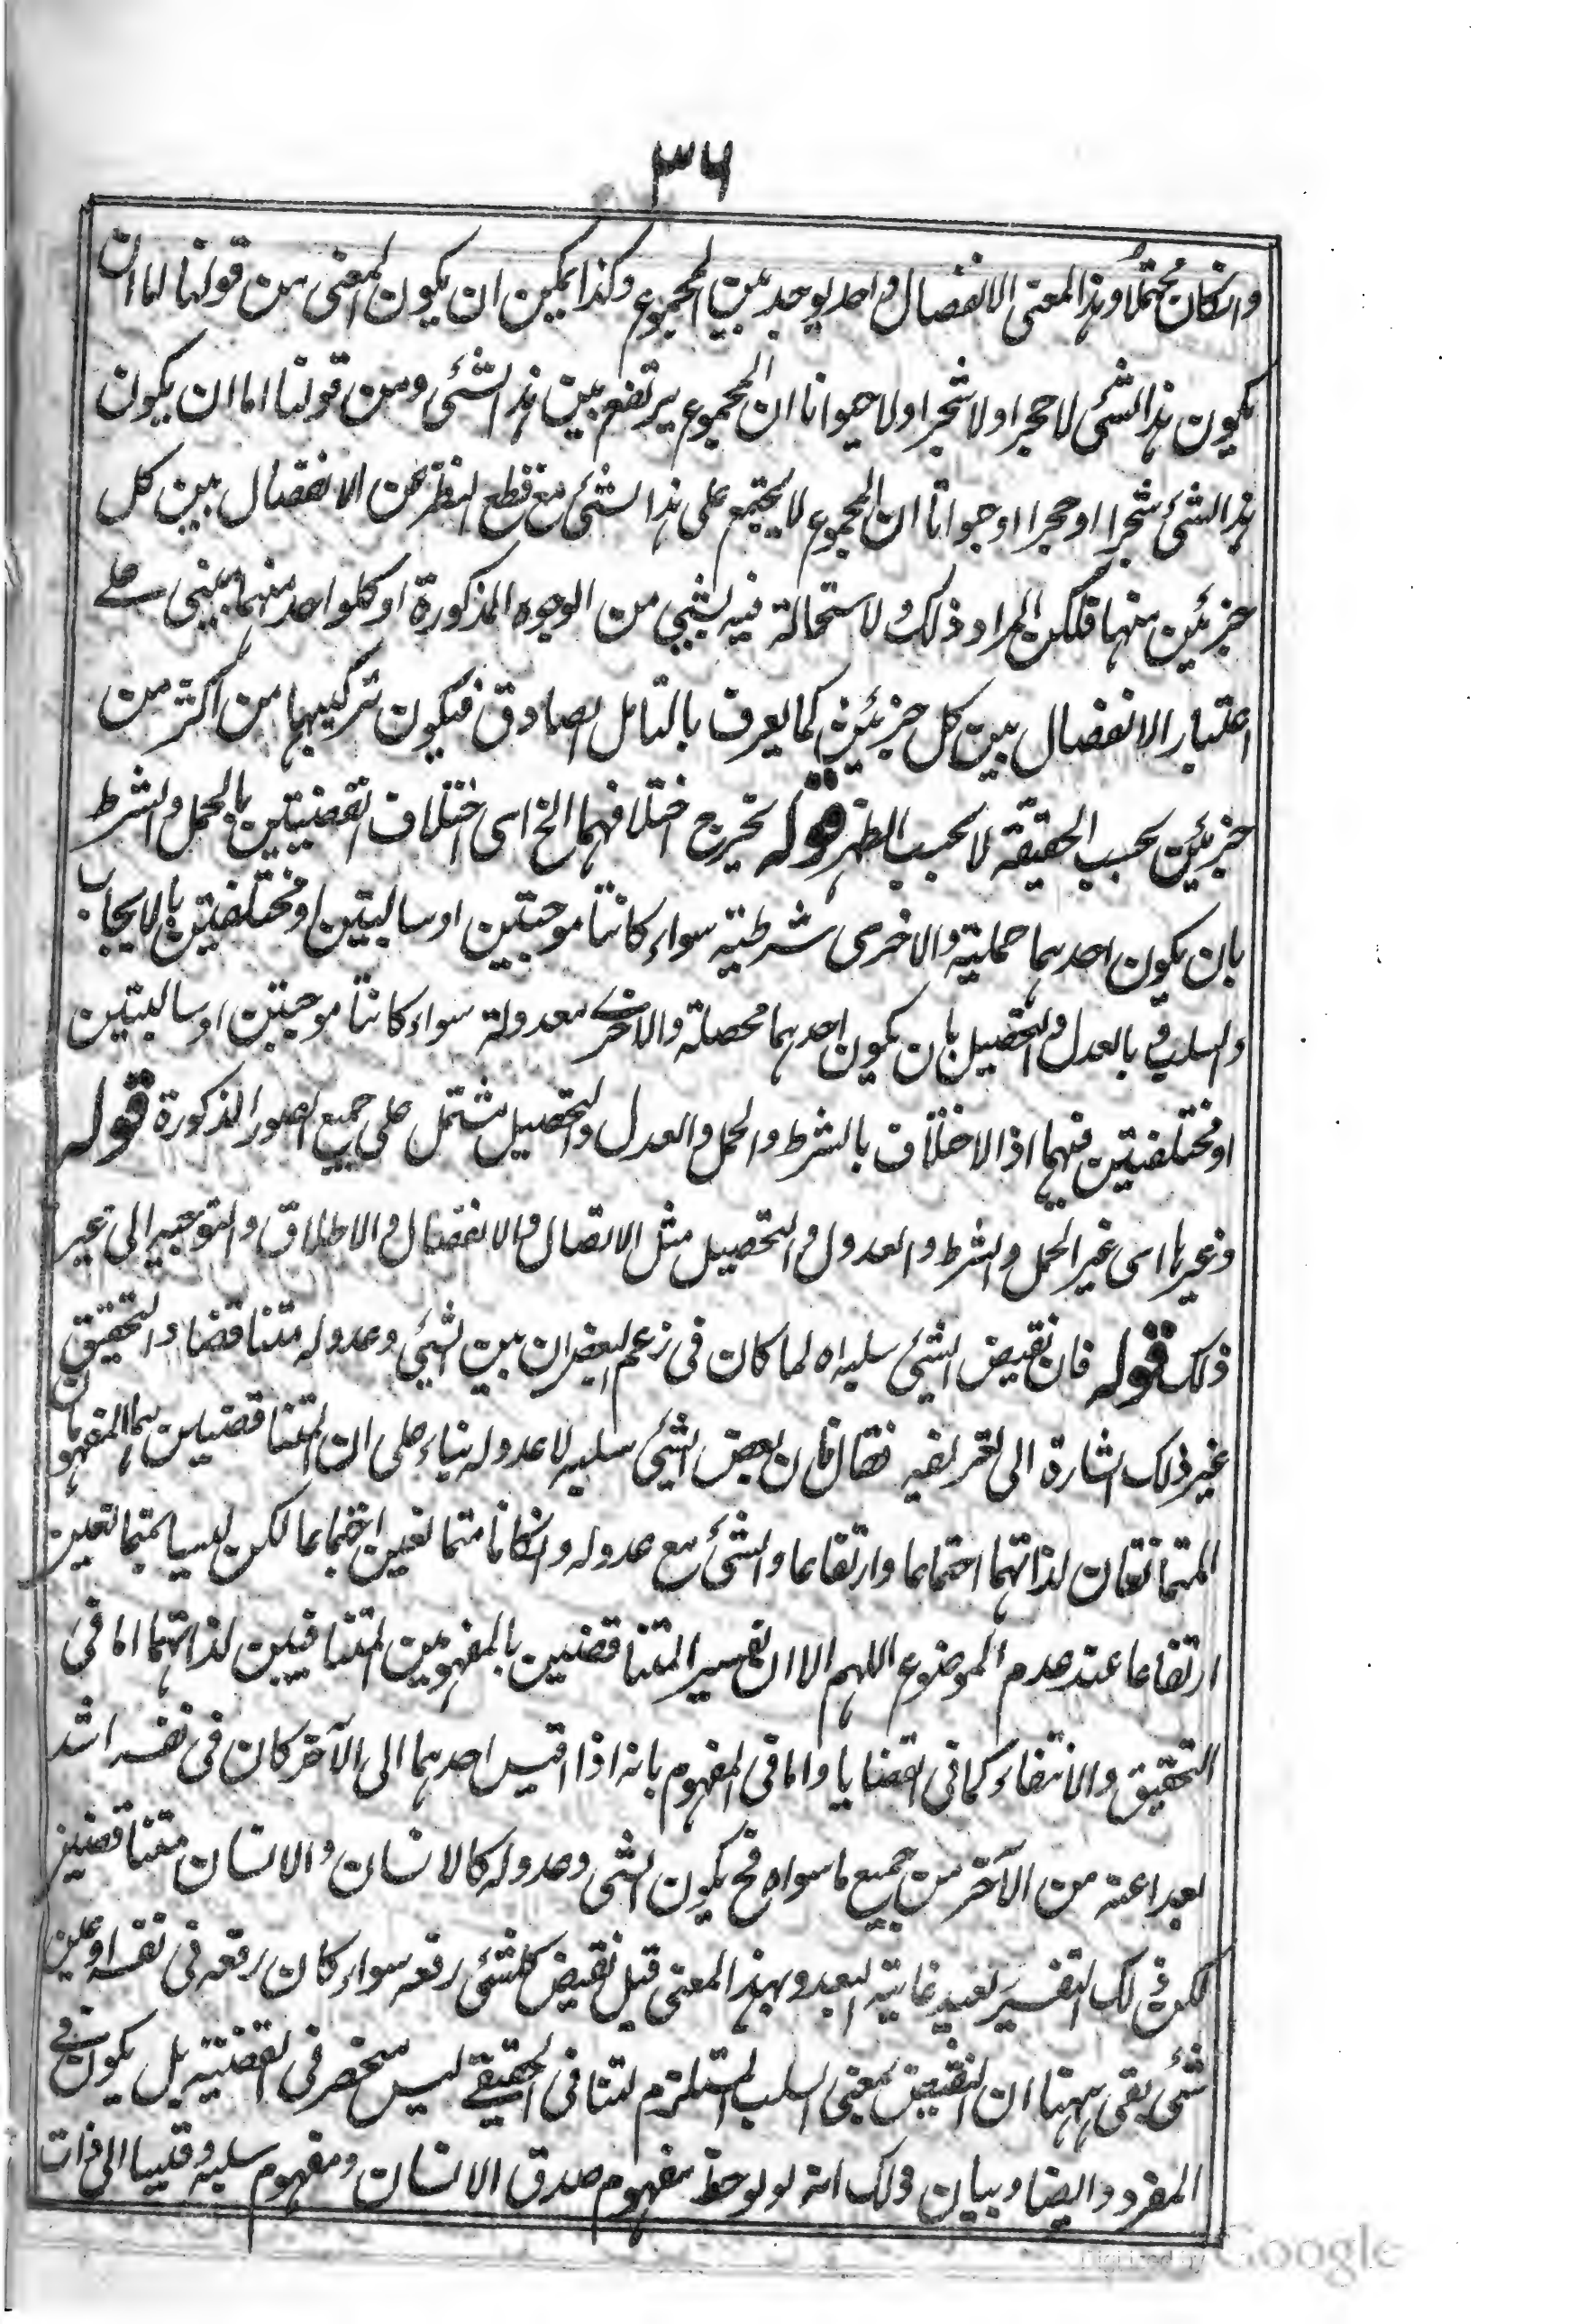 ٣٦
وانكان محتملا وهذا المعنى الانفصال واحد يوجد بين المجموع وكذا يمكن ان يكون المعنى من قولنا اما ان
يكون هذا الشئ لا حجرا ولا شجرا ولا حيوانا ان المجموع يرتفع بين هذا الشئ ومن قولنا اما ان يكون
هذا الشئ شجرا او حجرا او حيوانا ان المجموع لا يجتمع على هذا الشئ مع قطع النظر عن الانفصال بين كل
جزئين منها فلكن المراد ذلك ولا استحالة فيه بشئ من الوجوه المذكورة او كلواحد منهما مبنى على
اعتبار الانفصال بين كل جزئين كما يعرف بالتامل الصادق فيكون تركيبهما من اكثر من
جزئين بحسب الحقيقة لا بحسب الظهر قوله يخرج اختلافهما الخ اى اختلاف القضيتين بالحمل والشرط
بان يكون احدهما حملية والاخرى شرطية سواء كانتا موجبتين او سالبتين او مختلفتين بالايجاب
والسلب و بالعدل والتحصيل بان يكون احدهما محصلة والاخرى معدولة سواء كانتا موجبتين او سالبتين
او مختلفتين فيهما اذ الاختلاف بالشرط والحمل والعدل والتحصيل مشتمل على جميع الصور المذكورة قوله
وغيرها اى غير الحمل والشرط والعدول والتحصيل مثل الاتصال والانفصال والاطلاق والتوجيه الى غير
ذلك قوله فان نقيض الشئ سلبه اه لما كان فى زعم البعض ان بين الشئ وعدوله متناقضا و التحقيق
غير ذلك اشارة الى تعريفه فقال فان بعض الشئ سلبه لا عدوله بناء على ان المتناقضين هما المفهومان
المتمانعان لذاتهما اجتماعا وارتفاعا والشئ مع عدوله وانكانا متمانعين اجتماعا لكن ليسا بمتمانعين
ارتفاعا عند عدم الموضوع اللهم الا ان يفسير المتناقضين بالمفهومين المتنافيين لذاتهما اما فى
التحقيق والانتفاء كما فى القضايا واما فى المفهوم بانه اذا اقيس احدهما الى الآخر كان فى نفسه اشد
بعدا عنه من الآخر من جميع ما سواه فح يكون الشئ وعدوله كالانسان والانسان متناقضين
لكن ذلك التفسير بعيد غاية البعد وبهذا المعنى قيل نقيض كلشئ رفعه سواء كان رفعه فى نفسه او عن
شئ بقى ههنا ان النقيض بمعنى السلب المستلزم لتنافى الحقيقے ليس منحصر فى القضية بل يكون فى
المفرد وايضا وبيان ذلك انه لو لوحظ مفهوم صدق الانسان ومفهوم سلبه وقيسا الى ذات
Digitized by Google